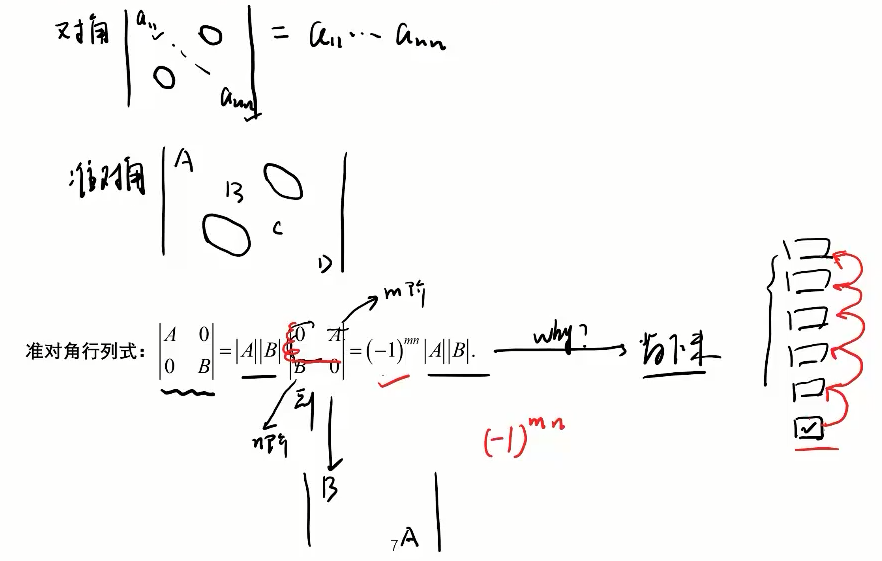 对角 | a₁₁ ⋱ aₙₙ 0 0 | = a₁₁ ⋯ aₙₙ
准对角 | A B C D |
m阶
准对角行列式: |A 0; 0 B| = |A||B| |0 A; B 0| = (−1)^{mn} |A||B|. why? 背下来
n阶
(-1)^{mn}
| B
7 A |